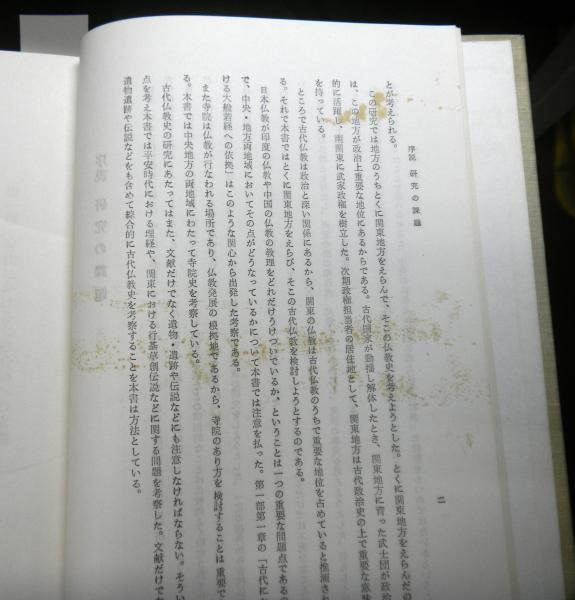 序説　研究の課題
二
とが考えられる。
この研究では地方のうちとくに関東地方をえらんで、そこの仏教史を考えようとした。とくに関東地方をえらんだの
は、この地方が政治上重要な地位にあるからである。古代国家が動揺し解体したとき、関東地方に育った武士団が政治
的に活躍し、南関東に武家政権を樹立した。次期政権担当者の居住地として、関東地方は古代政治史の上で重要な意味
を持っている。
ところで古代仏教は政治と深い関係にあるから、関東の仏教は古代仏教のうちで重要な地位を占めていると推測され
る。それで本書ではとくに関東地方をえらび、そこの古代仏教を検討しようとするのである。
日本仏教が印度の仏教や中国の仏教の教理をどれだけうけついでいるか、ということは一つの重要な問題点であるの
で、中央・地方両地域においてその点がどうなっているかについて本書では注意を払った。第一部第一章の「古代にお
ける大般若経への依拠」はこのような関心から出発した考察である。
また寺院は仏教が行なわれる場所であり、仏教発展の根拠地であるから、寺院のあり方を検討することは重要で
る。本書では中央地方の両地域にわたって寺院史を考察している。
古代仏教史の研究にあたってはまた、文献だけでなく遺物・遺跡や伝説などにも注意しなければならない。そうい
点を考え本書では平安時代における埋経や、関東における行基草創伝説などに関する問題を考察した。文献だけでな
遺物遺跡や伝説などをも含めて綜合的に古代仏教史を考察することを本書は方法としている。